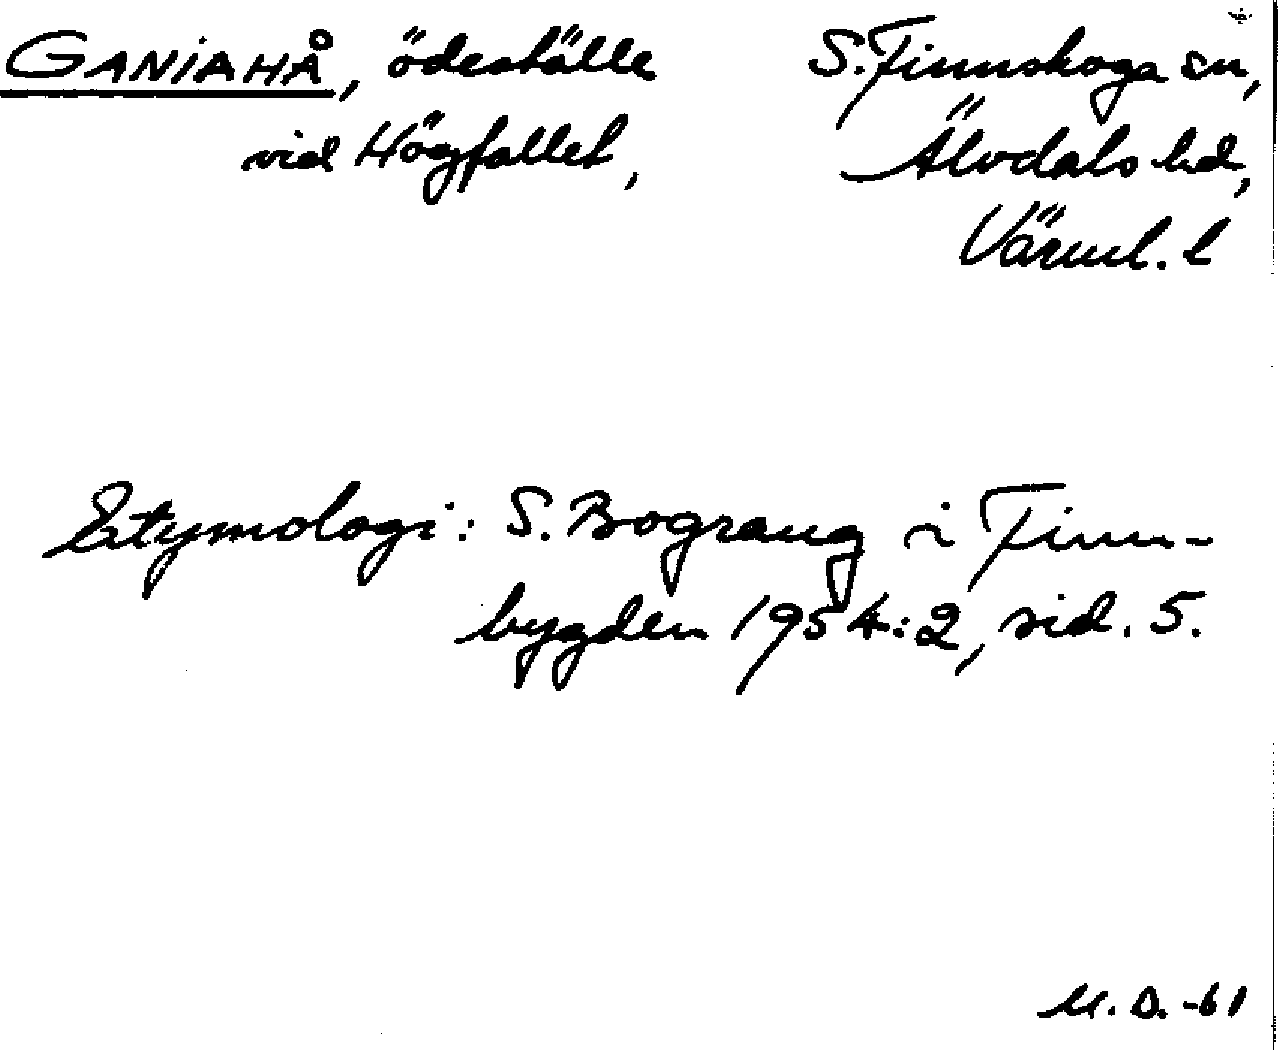 GANIAHÅ, ödeställe S. Finnskoga sn,
vid Högfallet, Älvdals hd,
Värml. l
Etymologi: S. Bograng i Finn-
bygden 1954:2, sid. 5.
M. D. -61